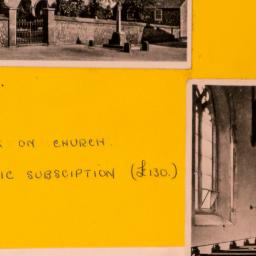 ON CHURCH.
SUBSCIPTION (£130.)